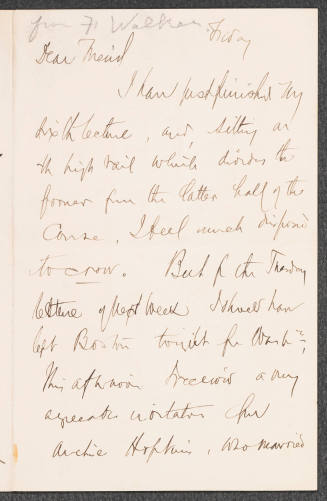 from F Walker
Friday
Dear Friend
I have just finished my
sixth lecture, and, sitting on
the high rail which divides the
former from the latter half of the
Course, I feel much disposed
to crow. But for the Tuesday
lecture of next week I should have
left Boston tonight for Washn.
This afternoon I received a very
agreeable invitation from
Archie Hopkins, who married